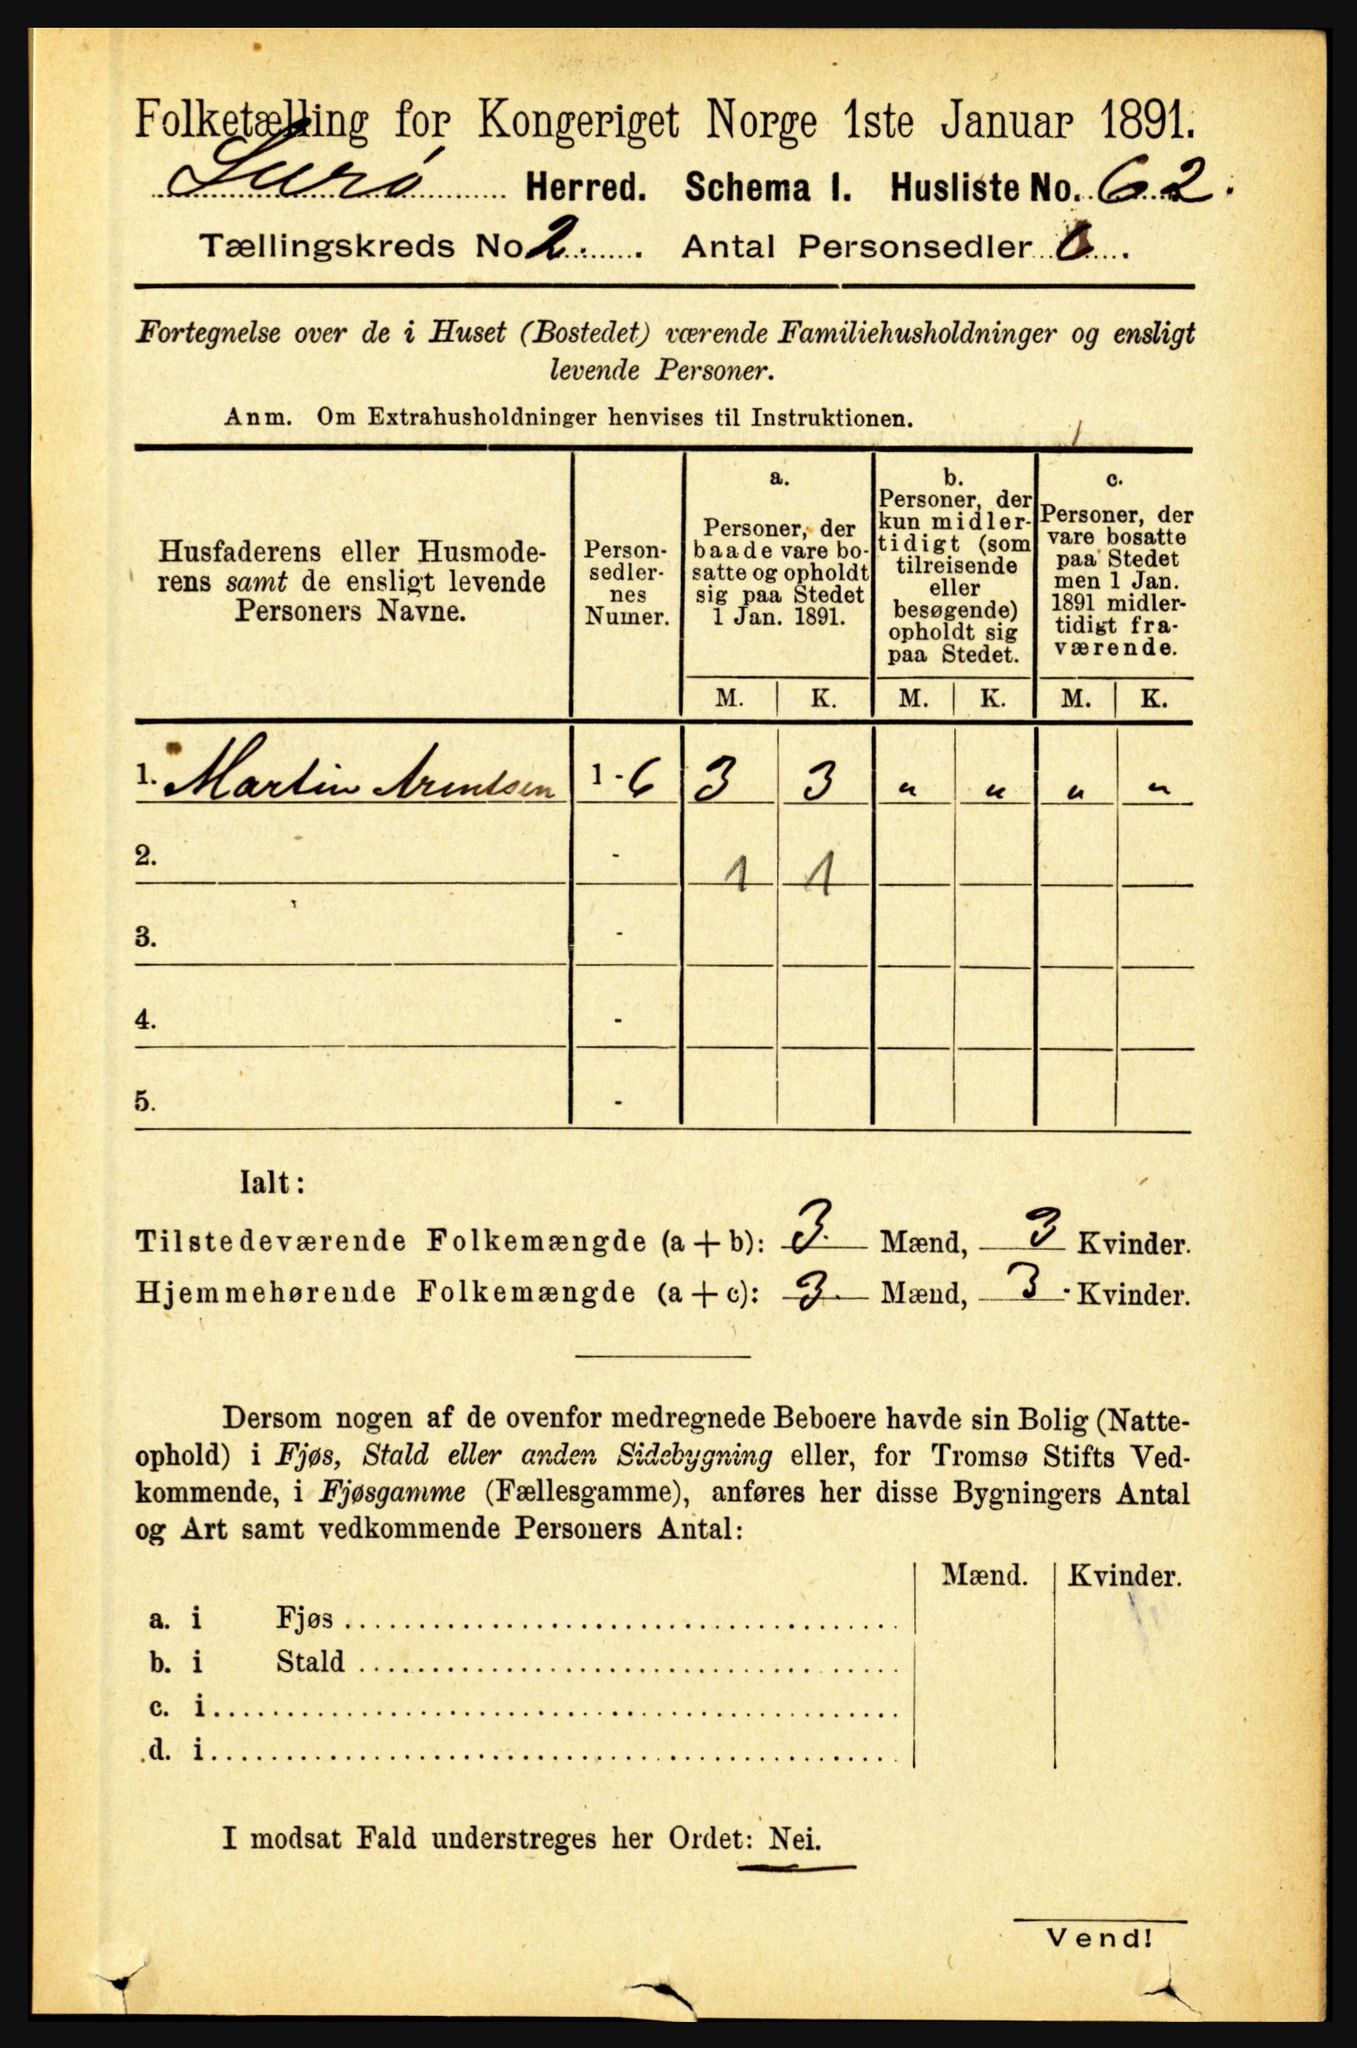 Folketælling for Kongeriget Norge 1ste Januar 1891.
Lurø Herred. Schema I. Husliste No. 62.
Tællingskreds No 2. Antal Personsedler 6.
Fortegnelse over de i Huset (Bostedet) værende Familiehusholdninger og ensligt
levende Personer.
Anm. Om Extrahusholdninger henvises til Instruktionen.
Husfaderens eller Husmode-
rens samt de ensligt levende
Personers Navne.
Person-
sedler-
nes
Numer.
a.
Personer, der
baade vare bo-
satte og opholdt
sig paa Stedet
1 Jan. 1891.
b.
Personer, der
kun midler-
tidigt (som
tilreisende
eller
besøgende)
opholdt sig
paa Stedet.
c.
Personer, der
vare bosatte
paa Stedet
men 1 Jan.
1891 midler-
tidigt fra-
værende.
M. K. M. K. M. K.
1. Martin Arentsen 1 - 6 3 3 „ „ „ „
2. - 1 1
3. -
4. -
5. -
Ialt:
Tilstedeværende Folkemængde (a + b): 3. Mænd, 3 Kvinder.
Hjemmehørende Folkemængde (a + c): 3. Mænd, 3. Kvinder.
Dersom nogen af de ovenfor medregnede Beboere havde sin Bolig (Natte-
ophold) i Fjøs, Stald eller anden Sidebygning eller, for Tromsø Stifts Ved-
kommende, i Fjøsgamme (Fællesgamme), anføres her disse Bygningers Antal
og Art samt vedkommende Personers Antal:
Mænd. Kvinder.
a. i Fjøs
b. i Stald
c. i
d. i
I modsat Fald understreges her Ordet: Nei.
Vend!